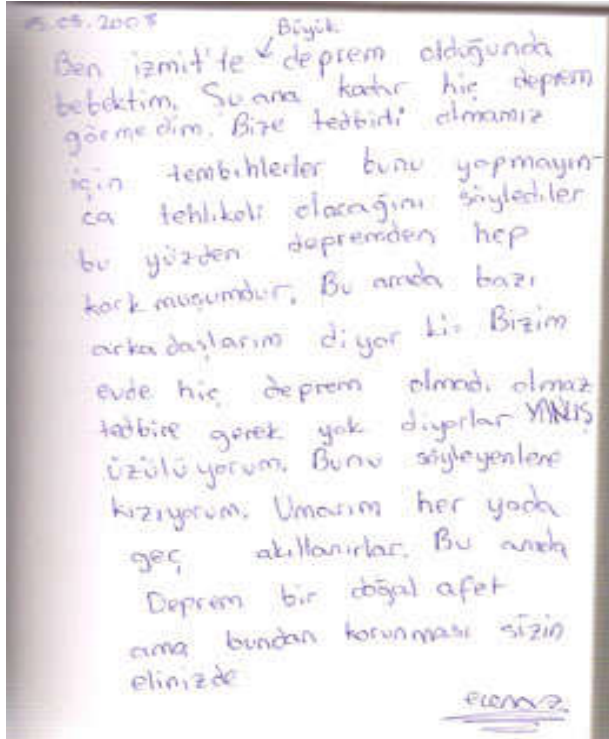 05.2008
Büyük
Ben izmit'te deprem olduğunda
bebektim. Şu ana kadar hiç deprem
görmedim. Bize tedbirli olmamız
için tembihlerler bunu yapmayın-
ca tehlikeli olacağını söylediler
bu yüzden depremden hep
korkmuşumdur. Bu arada bazı
arkadaşlarım diyor ki: Bizim
evde hiç deprem olmadı olmaz
tedbire gerek yok diyorlar YANLIŞ
üzülüyorum. Bunu söyleyenlere
kızıyorum. Umarım her yada
geç akıllanırlar. Bu arada
Deprem bir doğal afet
ama bundan korunması sizin
elinizde